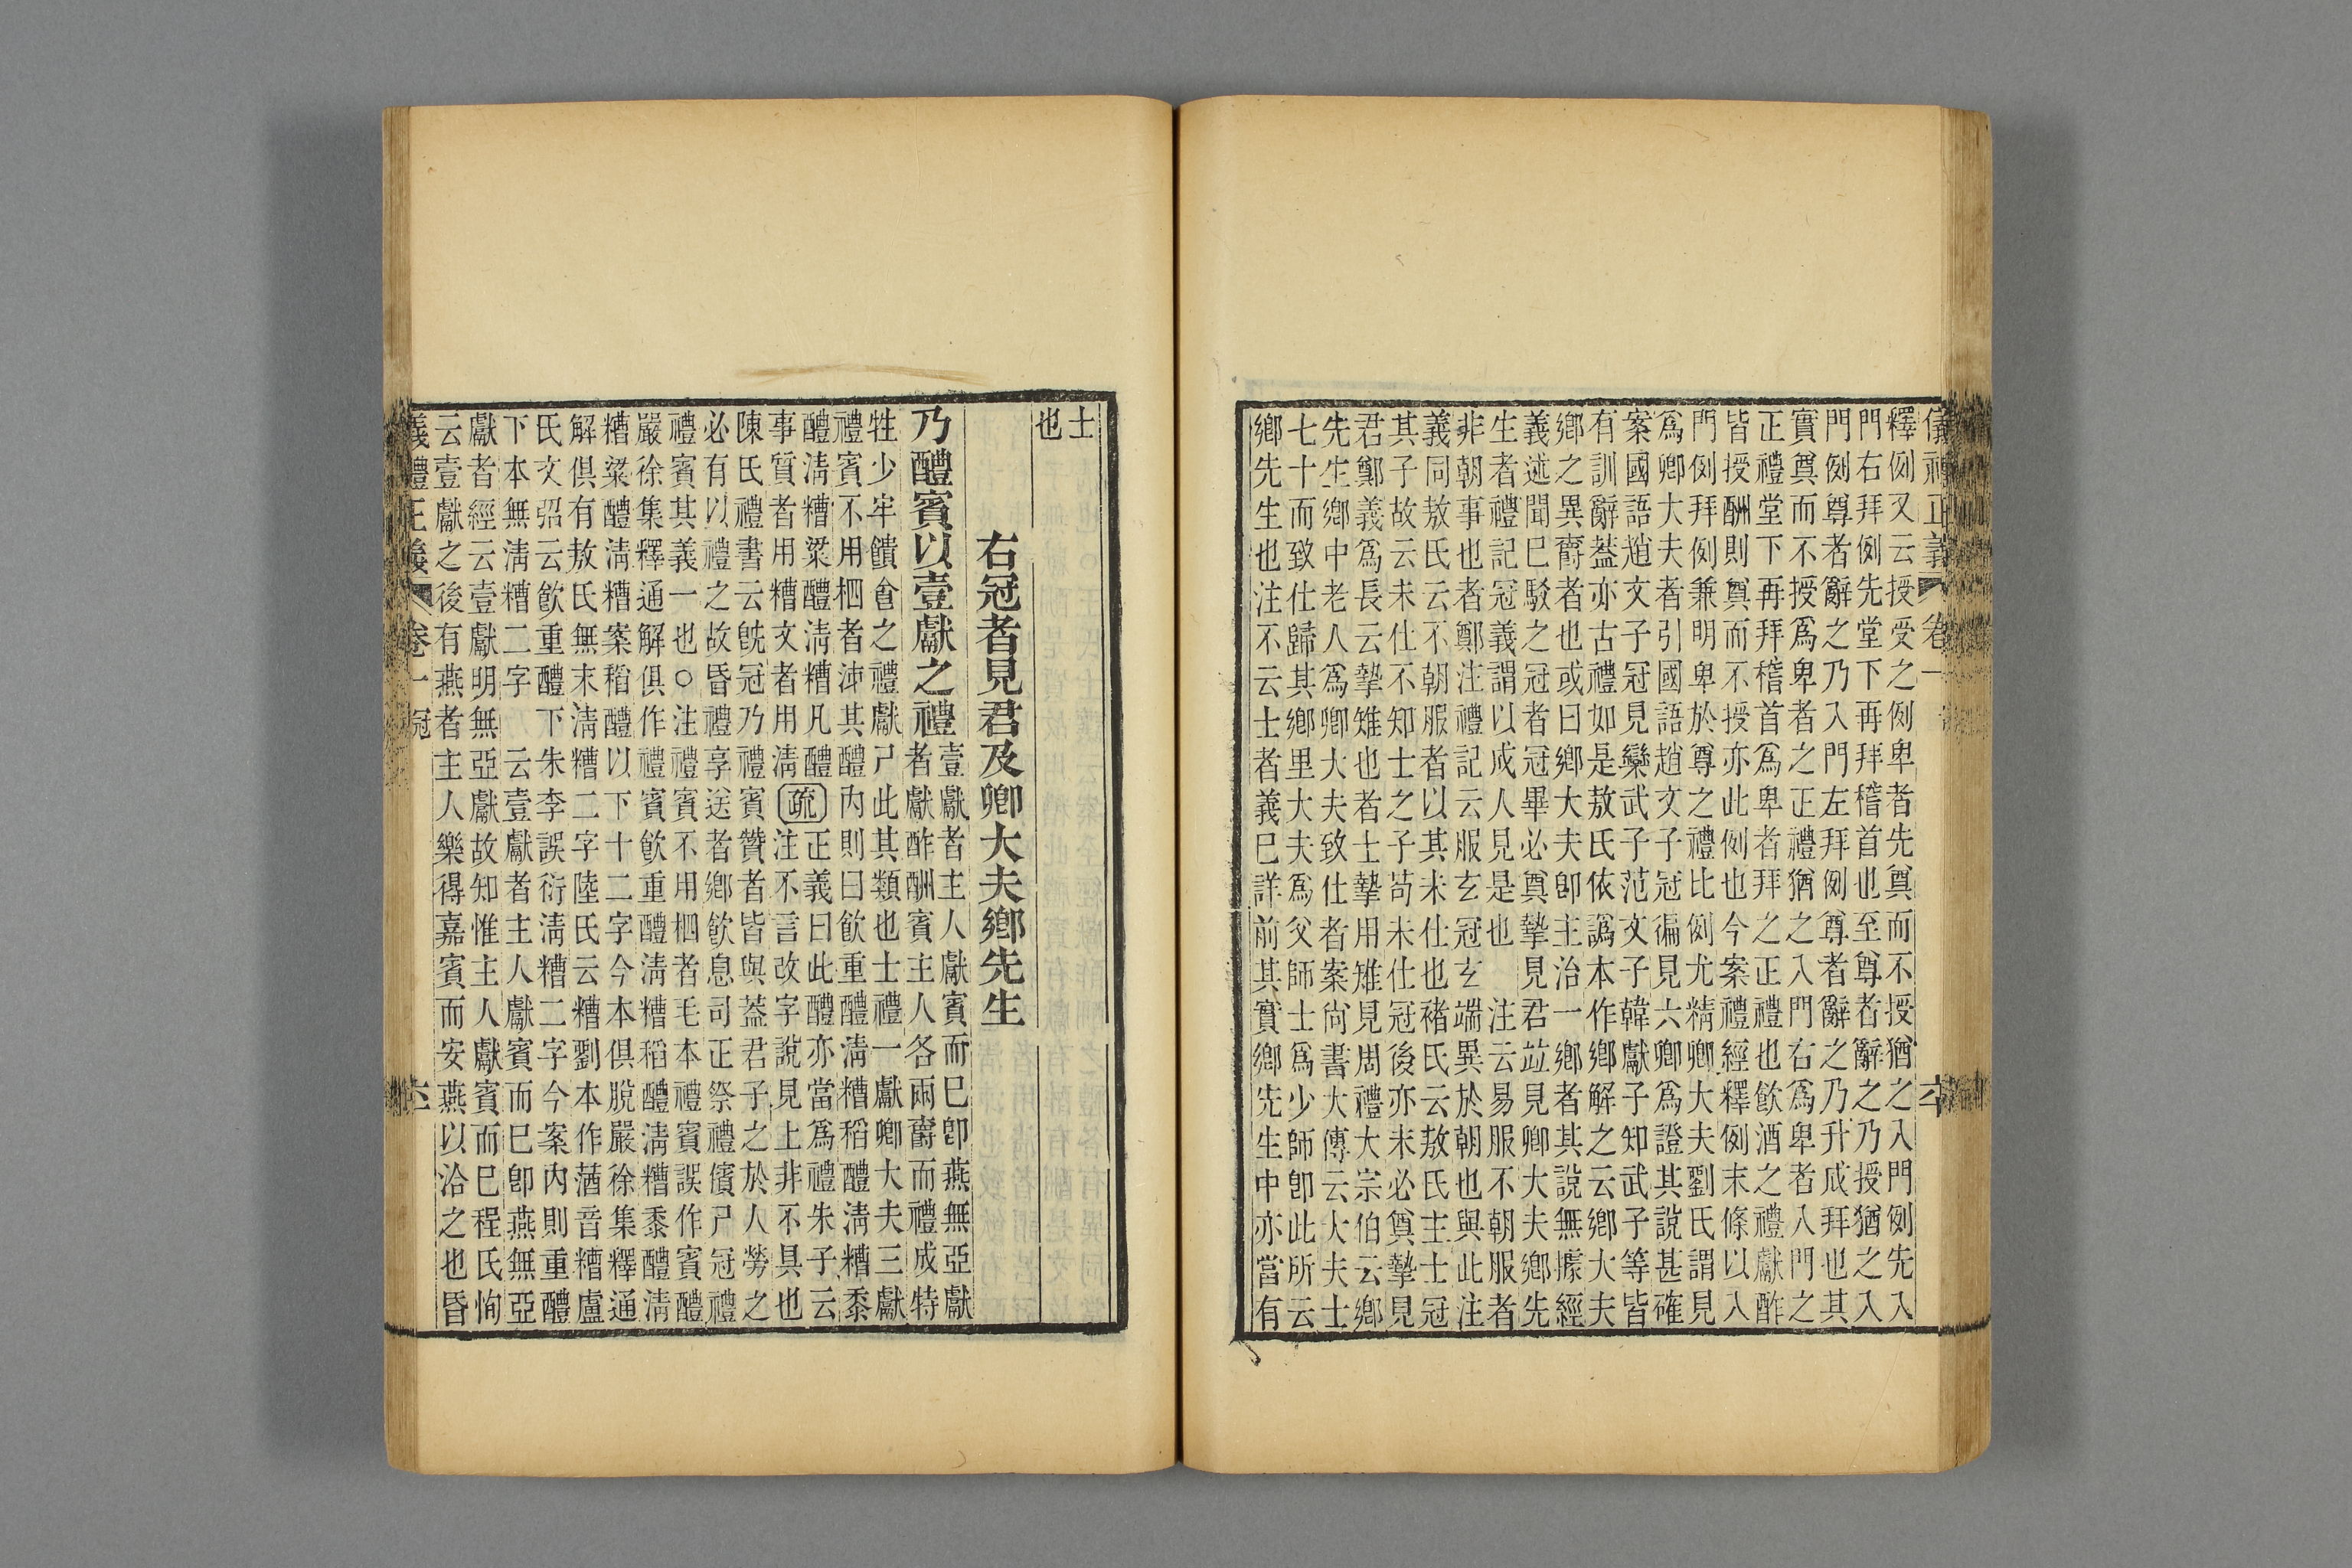 儀禮正義 卷一
釋例又云授受之例卑者先奠而不授猶之入門例先入
門右拜例先堂下再拜稽首也至尊者辭之乃授猶之入
門例尊者辭之乃入門左拜例尊者辭之乃升成拜也其
實奠而不授爲卑者之正禮猶之入門右爲卑者入門之
正禮堂下再拜稽首爲卑者拜之正禮也飲酒之禮獻酢
皆授酬則奠而不授亦此例也今案禮經釋例末條以入
門例拜例兼明卑於尊之禮比例尤精卿大夫劉氏謂見
爲卿大夫者引國語趙文子冠徧見六卿爲證其說甚確
案國語趙文子冠見欒武子范文子韓獻子知武子等皆
有訓辭葢亦古禮如是敖氏依譌本作鄕解之云鄕大夫
鄕之異爵者也或曰鄕大夫卽主治一鄕者其說無據經
義述聞已駁之冠者冠畢必奠摯見君竝見卿大夫鄕先
生者禮記冠義謂以成人見是也 注云易服不朝服者
非朝事也者鄭注禮記云服玄冠玄端異於朝也與此注
義同敖氏云不朝服者以其未仕也褚氏云敖氏主士冠
其子故云未仕不知士之子苟未仕冠後亦未必奠摯見
君鄭義爲長云摯雉也者士摯用雉見周禮大宗伯云鄕
先生鄕中老人爲卿大夫致仕者案尙書大傳云大夫士
七十而致仕歸其鄕里大夫爲父師士爲少師卽此所云
鄕先生也注不云士者義已詳前其實鄕先生中亦當有
士
也
右冠者見君及卿大夫鄕先生
乃醴賓以壹獻之禮
壹獻者主人獻賓而已卽燕無亞獻
者獻酢酬賓主人各兩爵而禮成特
牲少牢饋食之禮獻尸此其類也士禮一獻卿大夫三獻
禮賓不用柶者泲其醴內則曰飮重醴淸糟稻醴淸糟黍
醴淸糟粱醴淸糟凡醴
事質者用糟文者用淸
疏
正義曰此醴亦當爲禮朱子云
注不言改字說見上非不具也
陳氏禮書云旣冠乃禮賓贊者皆與葢君子之於人勞之
必有以禮之故昏禮享送者鄕飮息司正祭禮儐尸冠禮
禮賓其義一也○注禮賓不用柶者毛本禮賓誤作賓醴
嚴徐集釋通解俱作禮賓飮重醴淸糟稻醴淸糟黍醴淸
糟粱醴淸糟案稻醴以下十二字今本俱脫嚴徐集釋通
解俱有敖氏無末淸糟二字陸氏云糟劉本作蕕音糟盧
氏文弨云飮重醴下朱李誤衍淸糟二字今案內則重醴
下本無淸糟二字 云壹獻者主人獻賓而已卽燕無亞
獻者經云壹獻明無亞獻故知惟主人獻賓而已程氏恂
云壹獻之後有燕者主人樂得嘉賓而安燕以洽之也昏